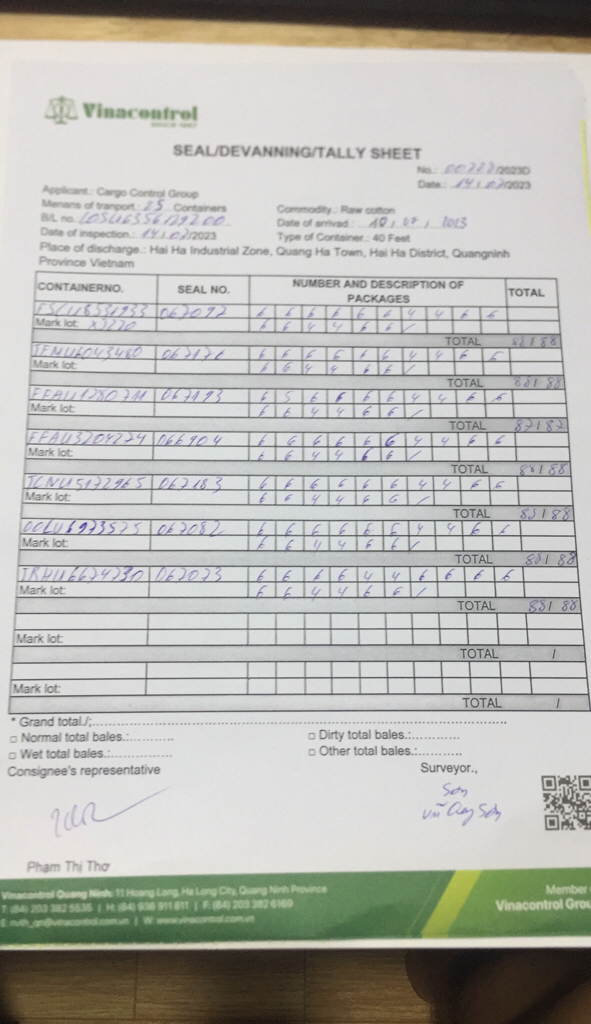 Vinacontrol
SEAL/DEVANNING/TALLY SHEET
No.: 00222/2023D
Date.: 14/02/2023
Applicant.: Cargo Control Group
Menans of tranport.: 25 Containers
Commodity.: Raw cotton
B/L no.
Date of inspection.: 14/02/2023
Type of Container.: 40 Feet
Place of discharge.: Hai Ha Industrial Zone, Quang Ha Town, Hai Ha District, Quangninh
Province Vietnam
CONTAINERNO. SEAL NO. NUMBER AND DESCRIPTION OF PACKAGES TOTAL
067092 6 6 6 6 6 6 4 4 6 6
Mark lot: 6 6 4 4 6 6 /
TOTAL 88/88
TEMU6043480 6 6 6 6 6 6 4 4 6 6
Mark lot: 6 6 4 4 6 6 /
TOTAL 88/88
067193 6 5 6 6 6 6 4 4 6 6
Mark lot: 6 6 4 4 6 6 /
TOTAL 87/87
FFAU3204274 066904 6 6 6 6 6 6 4 4 6 6
Mark lot: 6 6 4 4 6 6 /
TOTAL 88/88
TCNU5172965 067183 6 6 6 6 6 6 4 4 6 6
Mark lot: 6 6 4 4 6 6 /
TOTAL 88/88
067082 6 6 6 6 6 6 4 4 6 6
Mark lot: 6 6 4 4 6 6 /
TOTAL 88/88
067073 6 6 6 6 4 4 6 6 6 6
Mark lot: 6 6 4 4 6 6 /
TOTAL 88/88
Mark lot:
TOTAL /
Mark lot:
TOTAL /
* Grand total./;
□ Normal total bales.: □ Dirty total bales.:
□ Wet total bales.: □ Other total bales.:
Consignee's representative Surveyor.,
Sơn
Phạm Thị Thơ
Vinacontrol Quang Ninh: 11 Hoang Long, Ha Long City, Quang Ninh Province
T: (84) 203 382 5535 | H: (84) 936 911 811 | F: (84) 203 382 6169
W: www.vinacontrol.com.vn
Member
Vinacontrol Grou